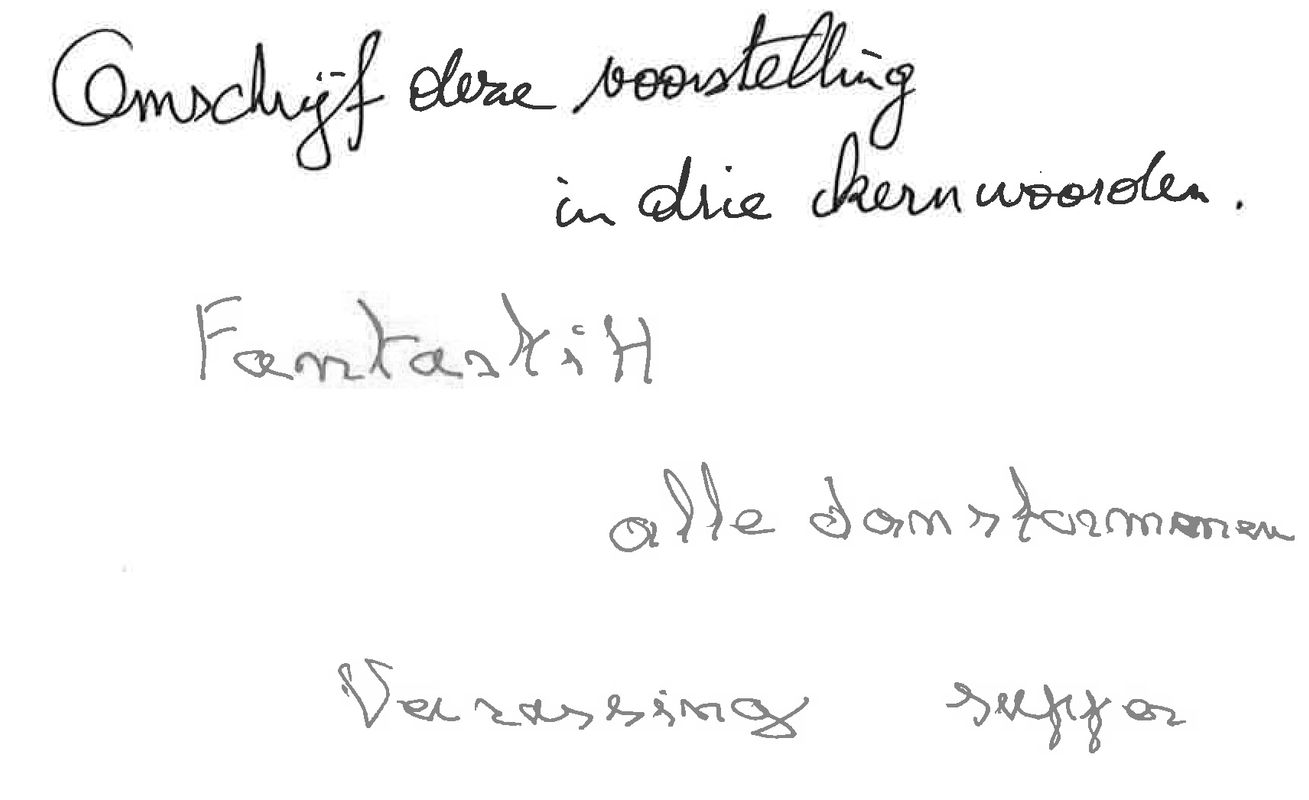 Omschrijf deze voorstelling
in drie kernwoorden.
Fantastisch
alle dansformen
Verrassing suppor